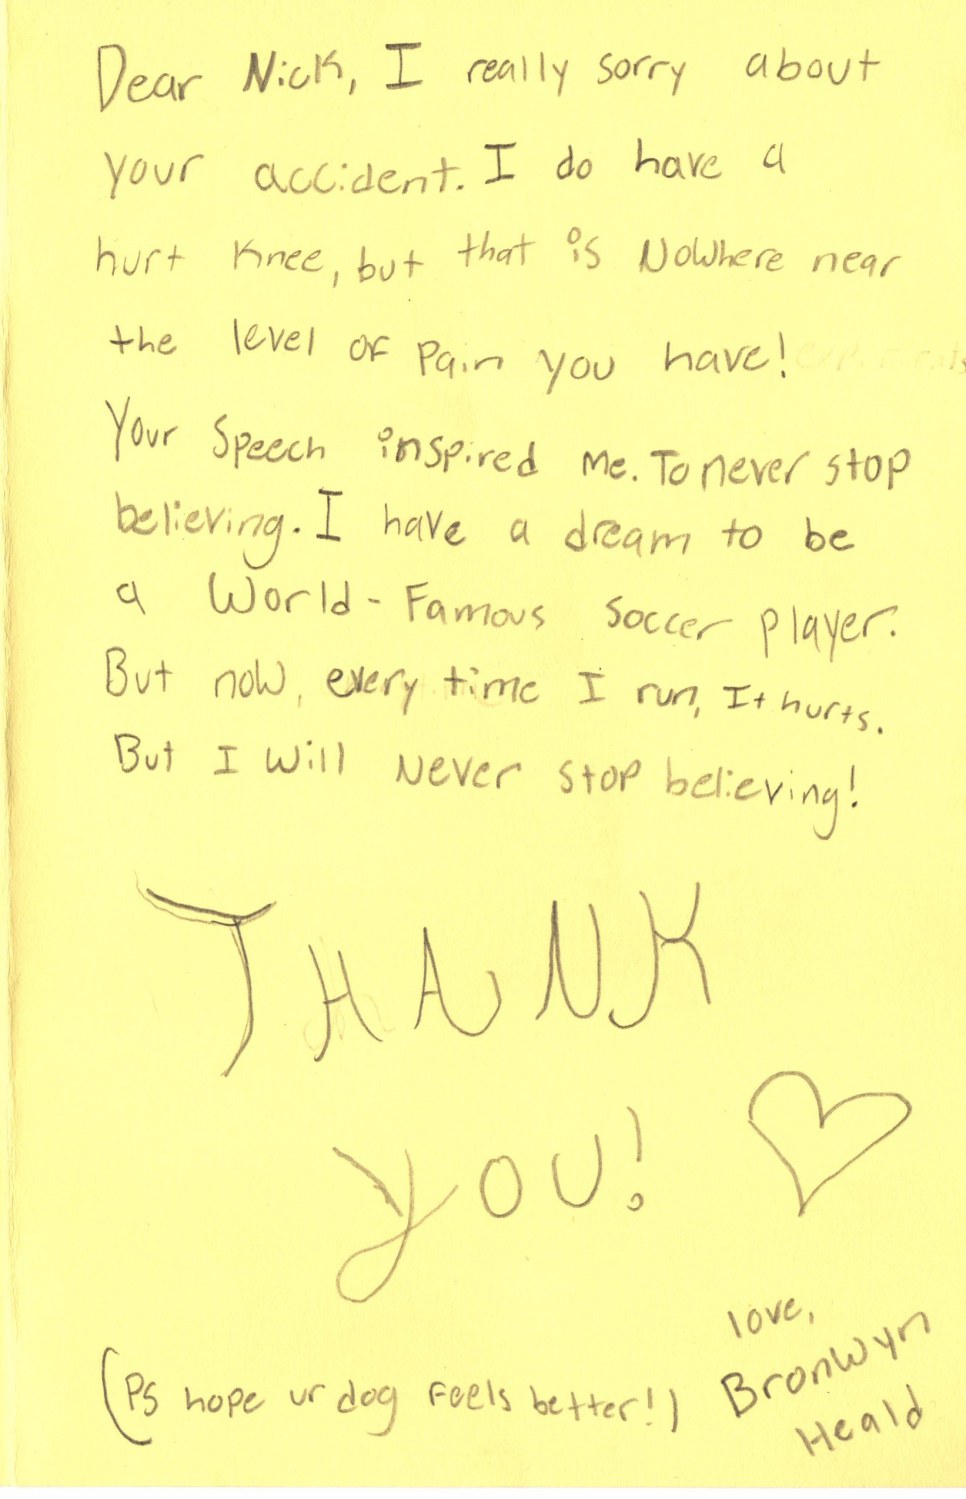 Dear Nick, I really sorry about
your accident. I do have a
hurt knee, but that is NoWhere near
the level of Pain you have!
Your Speech inspired me. To never stop
believing. I have a dream to be
a World-Famous soccer player.
But now, every time I run, It hurts.
But I Will Never stop believing!
THANK
YOU!
love,
Bronwyn
Heald
(PS hope ur dog feels better!)